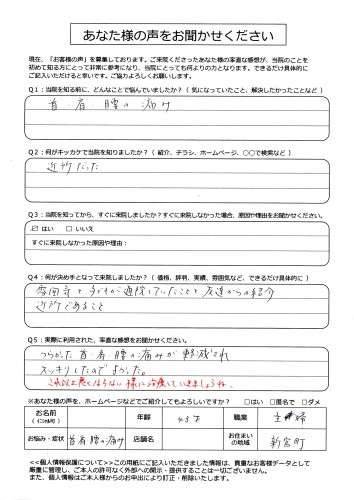 あなた様の声をお聞かせください
現在、「お客様の声」を募集しております。ご来院くださったあなた様の率直な感想が、当院のことを
初めて知る方にとって非常に参考になり、当院にとっても何よりの力となります。できるだけ具体的に
ご記入いただけると幸いです。ご協力よろしくお願いします。
Q1:当院を知る前に、どんなことで悩んでいましたか?(気になっていたこと、解決したかったことなど)
首・肩・腰の痛み
Q2:何がキッカケで当院を知りましたか?(紹介、チラシ、ホームページ、○○で検索など)
近所だった
Q3:当院を知ってから、すぐに来院しましたか?すぐに来院しなかった場合、原因や理由をお聞かせください。
☑はい □いいえ
すぐに来院しなかった原因や理由:
Q4:何が決め手となって来院しましたか?(価格、評判、実績、雰囲気など、できるだけ具体的に)
雰囲気と子どもが通院していたことと友達からの紹介
近所であること
Q5:実際に利用された、率直な感想をお聞かせください。
つらかった首・肩・腰の痛みが軽減され
スッキリしたのでよかった。
これ以上悪くならない様に治療していきましょうね。
※あなた様の声を、ホームページなどでご紹介してもよろしいですか? □はい □匿名で □ダメ
お名前 年齢 43才 職業 主婦
(イニシャル可)
お悩み・症状 首肩腰の痛み 店舗名 お住まいの地域 新宮町
<<個人情報保護について>>この用紙にご記入いただきました情報は、貴重なお客様データとして
厳重に管理し、ご本人の許可なく外部への開示・提供することは一切ございません。
また、個人情報はご本人様からのお申出により訂正・削除いたします。